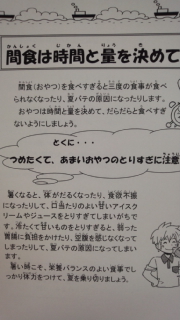 間食は時間と量を決めて
かんしょく じかん りょう き
間食(おやつ)を食べすぎると三度の食事が食べ
られなくなったり、夏バテの原因になったりします。
おやつは時間と量を決めて、だらだらと食べすぎ
ないようにしましょう。
とくに・・・
つめたくて、あまいおやつのとりすぎに注意
暑くなると、体がだるくなったり、食欲不振
になったりして、口当たりのよい甘いアイスク
リームやジュースをとりすぎてしまいがちで
す。冷たくて甘いものをとりすぎると、弱った
胃腸に負担をかけたり、空腹を感じなくなって
しまったりして、夏バテの原因になってしまい
ます。
暑い時こそ、栄養バランスのよい食事でし
っかり体力をつけて、夏を乗り切りましょう。